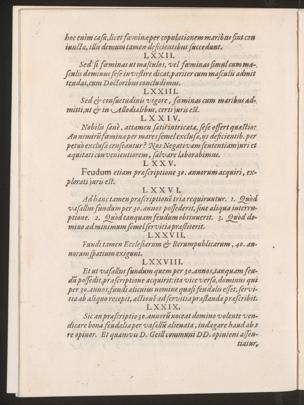 hoc enim casu, licet fœminæ per copulationem maribus sint con
iunctæ, illis demum tamen deficientibus succedunt.
LXXII.
Sed si fœminas ut masculos, vel fœminas simul cum ma-
sculis dominus sese investire dicat, pariter cum masculis admit
tendas, cum Doctoribus concludimus.
LXXIII.
Sed & consuetudinis vigore, fœminas cum maribus ad-
mitti, ut & in Allodialibus, certi juris est.
LXXIV.
Nobilis sanè, attamen satis intricata, sese offert quæstio:
An nimirū fœminæ per mares semel exclusæ, ijs deficientib. per
petuò exclusæ censeantur? Nos Negativam sententiam juri et
æquitati convenientiorem, salvare laborabimus.
LXXV.
Feudum etiam præscriptione 30. annorum acquiri, ex-
plorati juris est.
LXXVI.
Ad hanc tamen præscriptionē tria requiruntur. 1. Quòd
vasallus fundum per 30. annos possederit, sine aliqua interru-
ptione. 2. Quòd tanquam feudum obtinuerit. 3. Quòd do-
mino ad minimum semel servitia præstiterit.
LXXVII.
Fundi tamen Ecclesiarum & Rerumpublicarum, 40. an-
norum spatium exigunt.
LXXVIII.
Et ut vasallus fundum quem per 30. annos, tanquam feu-
dū possedit, præscriptione acquirit: ita vice versa, dominus qui
per 30. annos, fundi alicuius nomine quasi feudalis esset, servi-
tia ab aliquo recepit, actionē ad servitia præstanda præscribit.
LXXIX.
Sic an præscriptio 30. annorū noceat domino volenti ven-
dicare bona feudalia per vasallū alienata, indagare haud ab s
re opinor. Et quamvis D. Geilcommuni DD. opinioni assen-
tiatur,